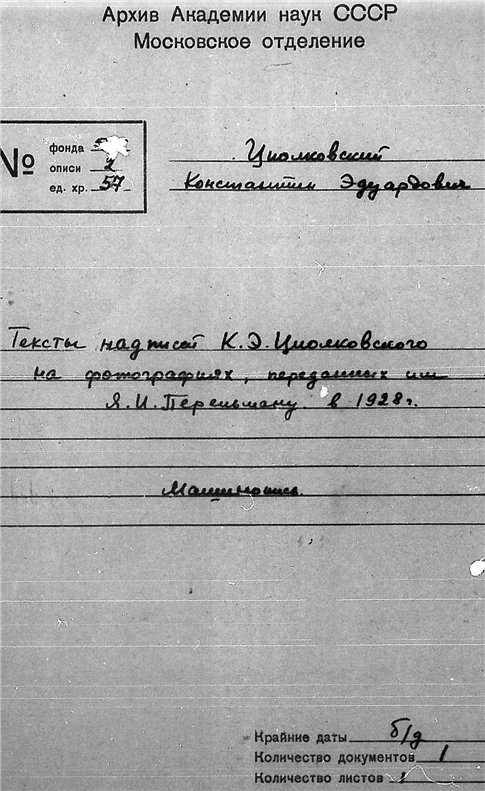 Архив Академии наук СССР
Московское отделение
№
фонда
описи 2
ед. хр. 57
Циолковский
Константин Эдуардович
Тексты надписей К.Э.Циолковского
на фотографиях, переданных им
Я.И.Перельману в 1928г.
Машинопись.
Крайние даты б/д
Количество документов 1
Количество листов